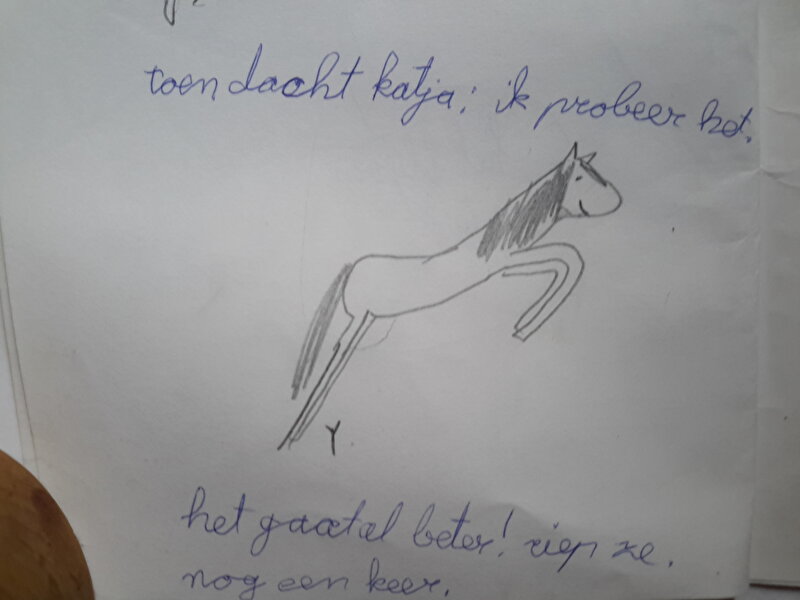 toen dacht katja: ik probeer het.
het gaat al beter! riep ze.
nog een keer.